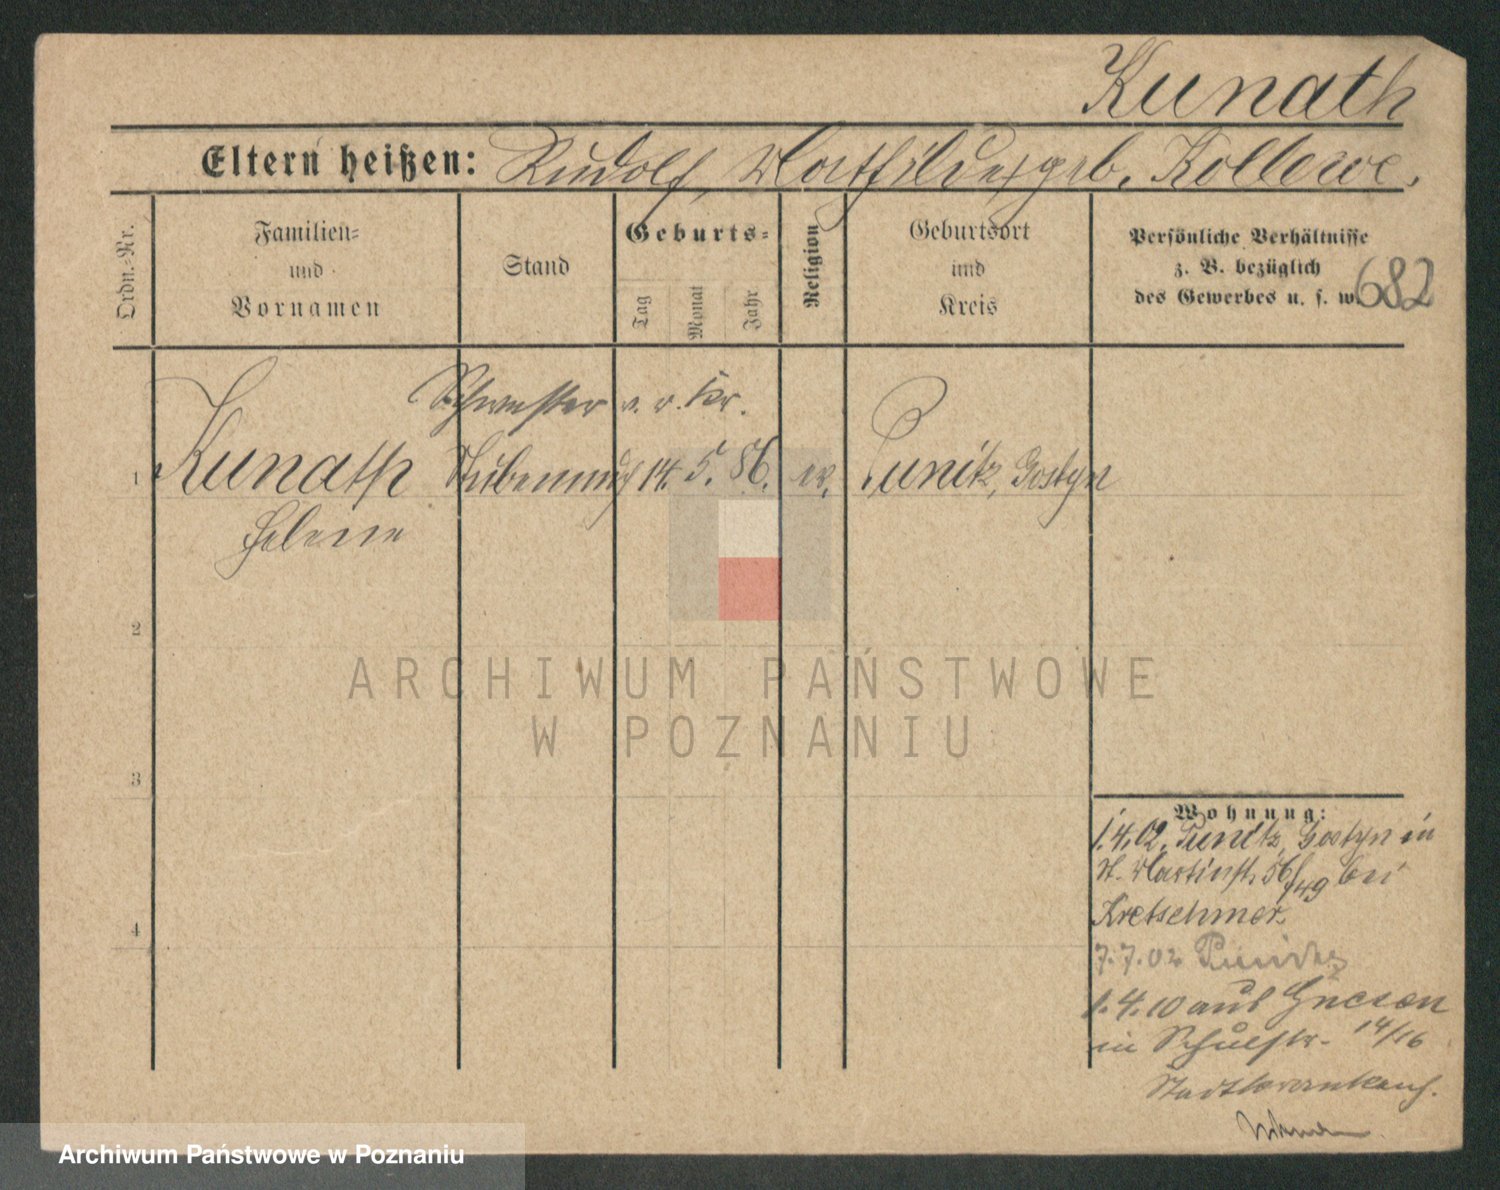 Kunath
Eltern heißen: Rudolf, Mathilde, geb. Kollewe.
Ordn.-Nr.
Familien-
und
Vornamen
Stand
Geburts-
Tag
Monat
Jahr
Religion
Geburtsort
und
Kreis
Persönliche Verhältnisse
z. B. bezüglich
des Gewerbes u. s. w.
682
Schwester v. r. Kr.
1 Kunath 14. 5. 86. ev. Punitz, Gostyn
Helene
2
3
4
ARCHIWUM PAŃSTWOWE
W POZNANIU
Wohnung:
1.4.02. Punitz, Gostyn in
St. Martinst. 56/49 bei
Kretschmer.
7.7.02 Punitz
1.4.10 aus Gnesen
in Schulstr. 14/16
Stadtkrankenh.
Archiwum Państwowe w Poznaniu